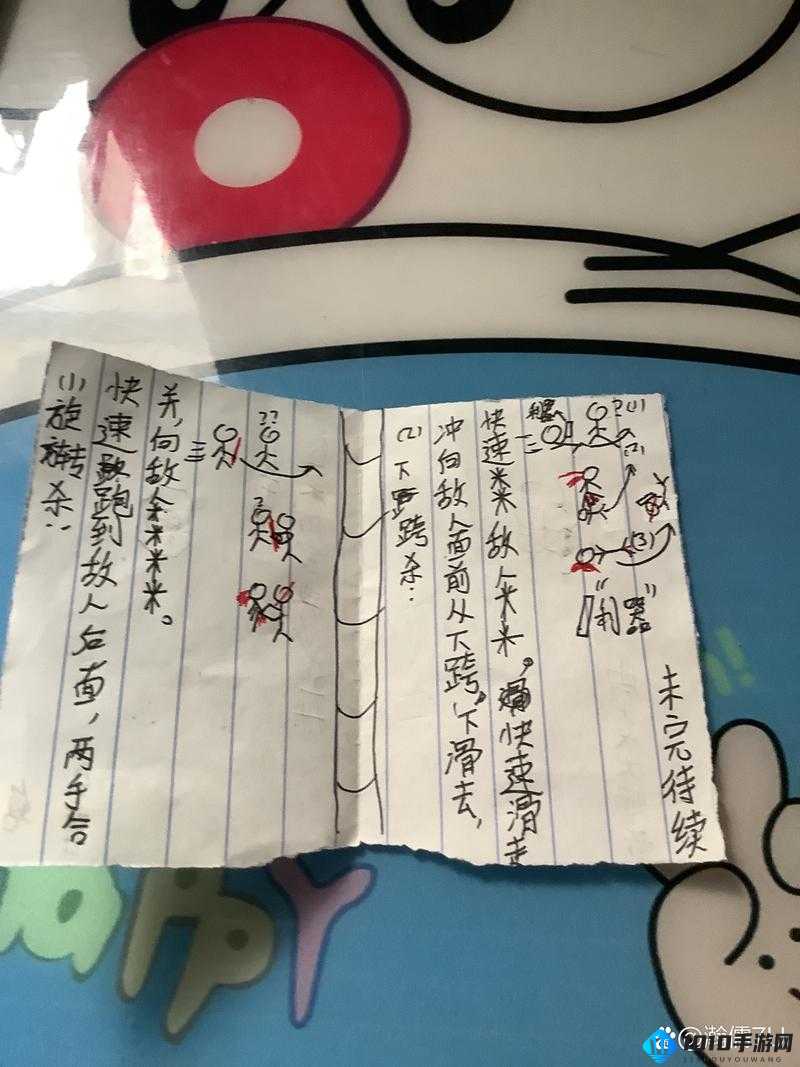 (1)旋转杀:
快速跑到敌人后面,两手合
并,向敌人米米米。
??
?
(2)下跨杀:
冲向敌人面前从下跨下滑去,
快速米米敌人米米。快速滑走
?(1)
(2)
(3)
未完待续
HAPPY
2010手游网